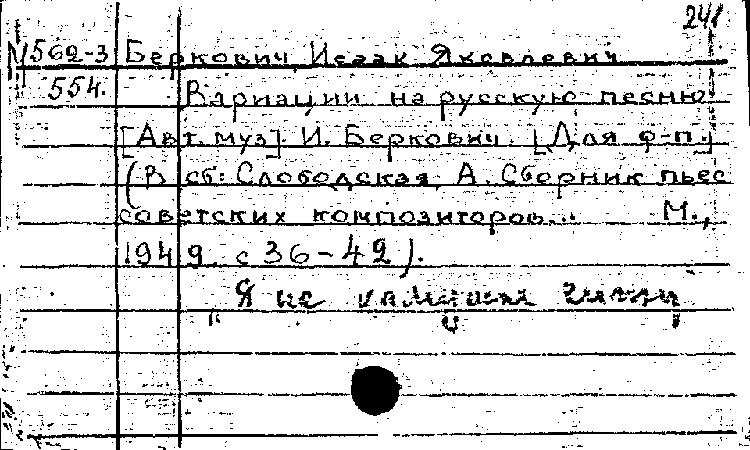 241
М562-3 Беркович, Исаак Яковлевич
554. Вариации на русскую песню
[Авт. муз]. И. Беркович. [Для ф-п.]
(В сб: Слободская, А. Сборник пьес
советских композиторов... М.,
1949. с 36-42).
"Я не